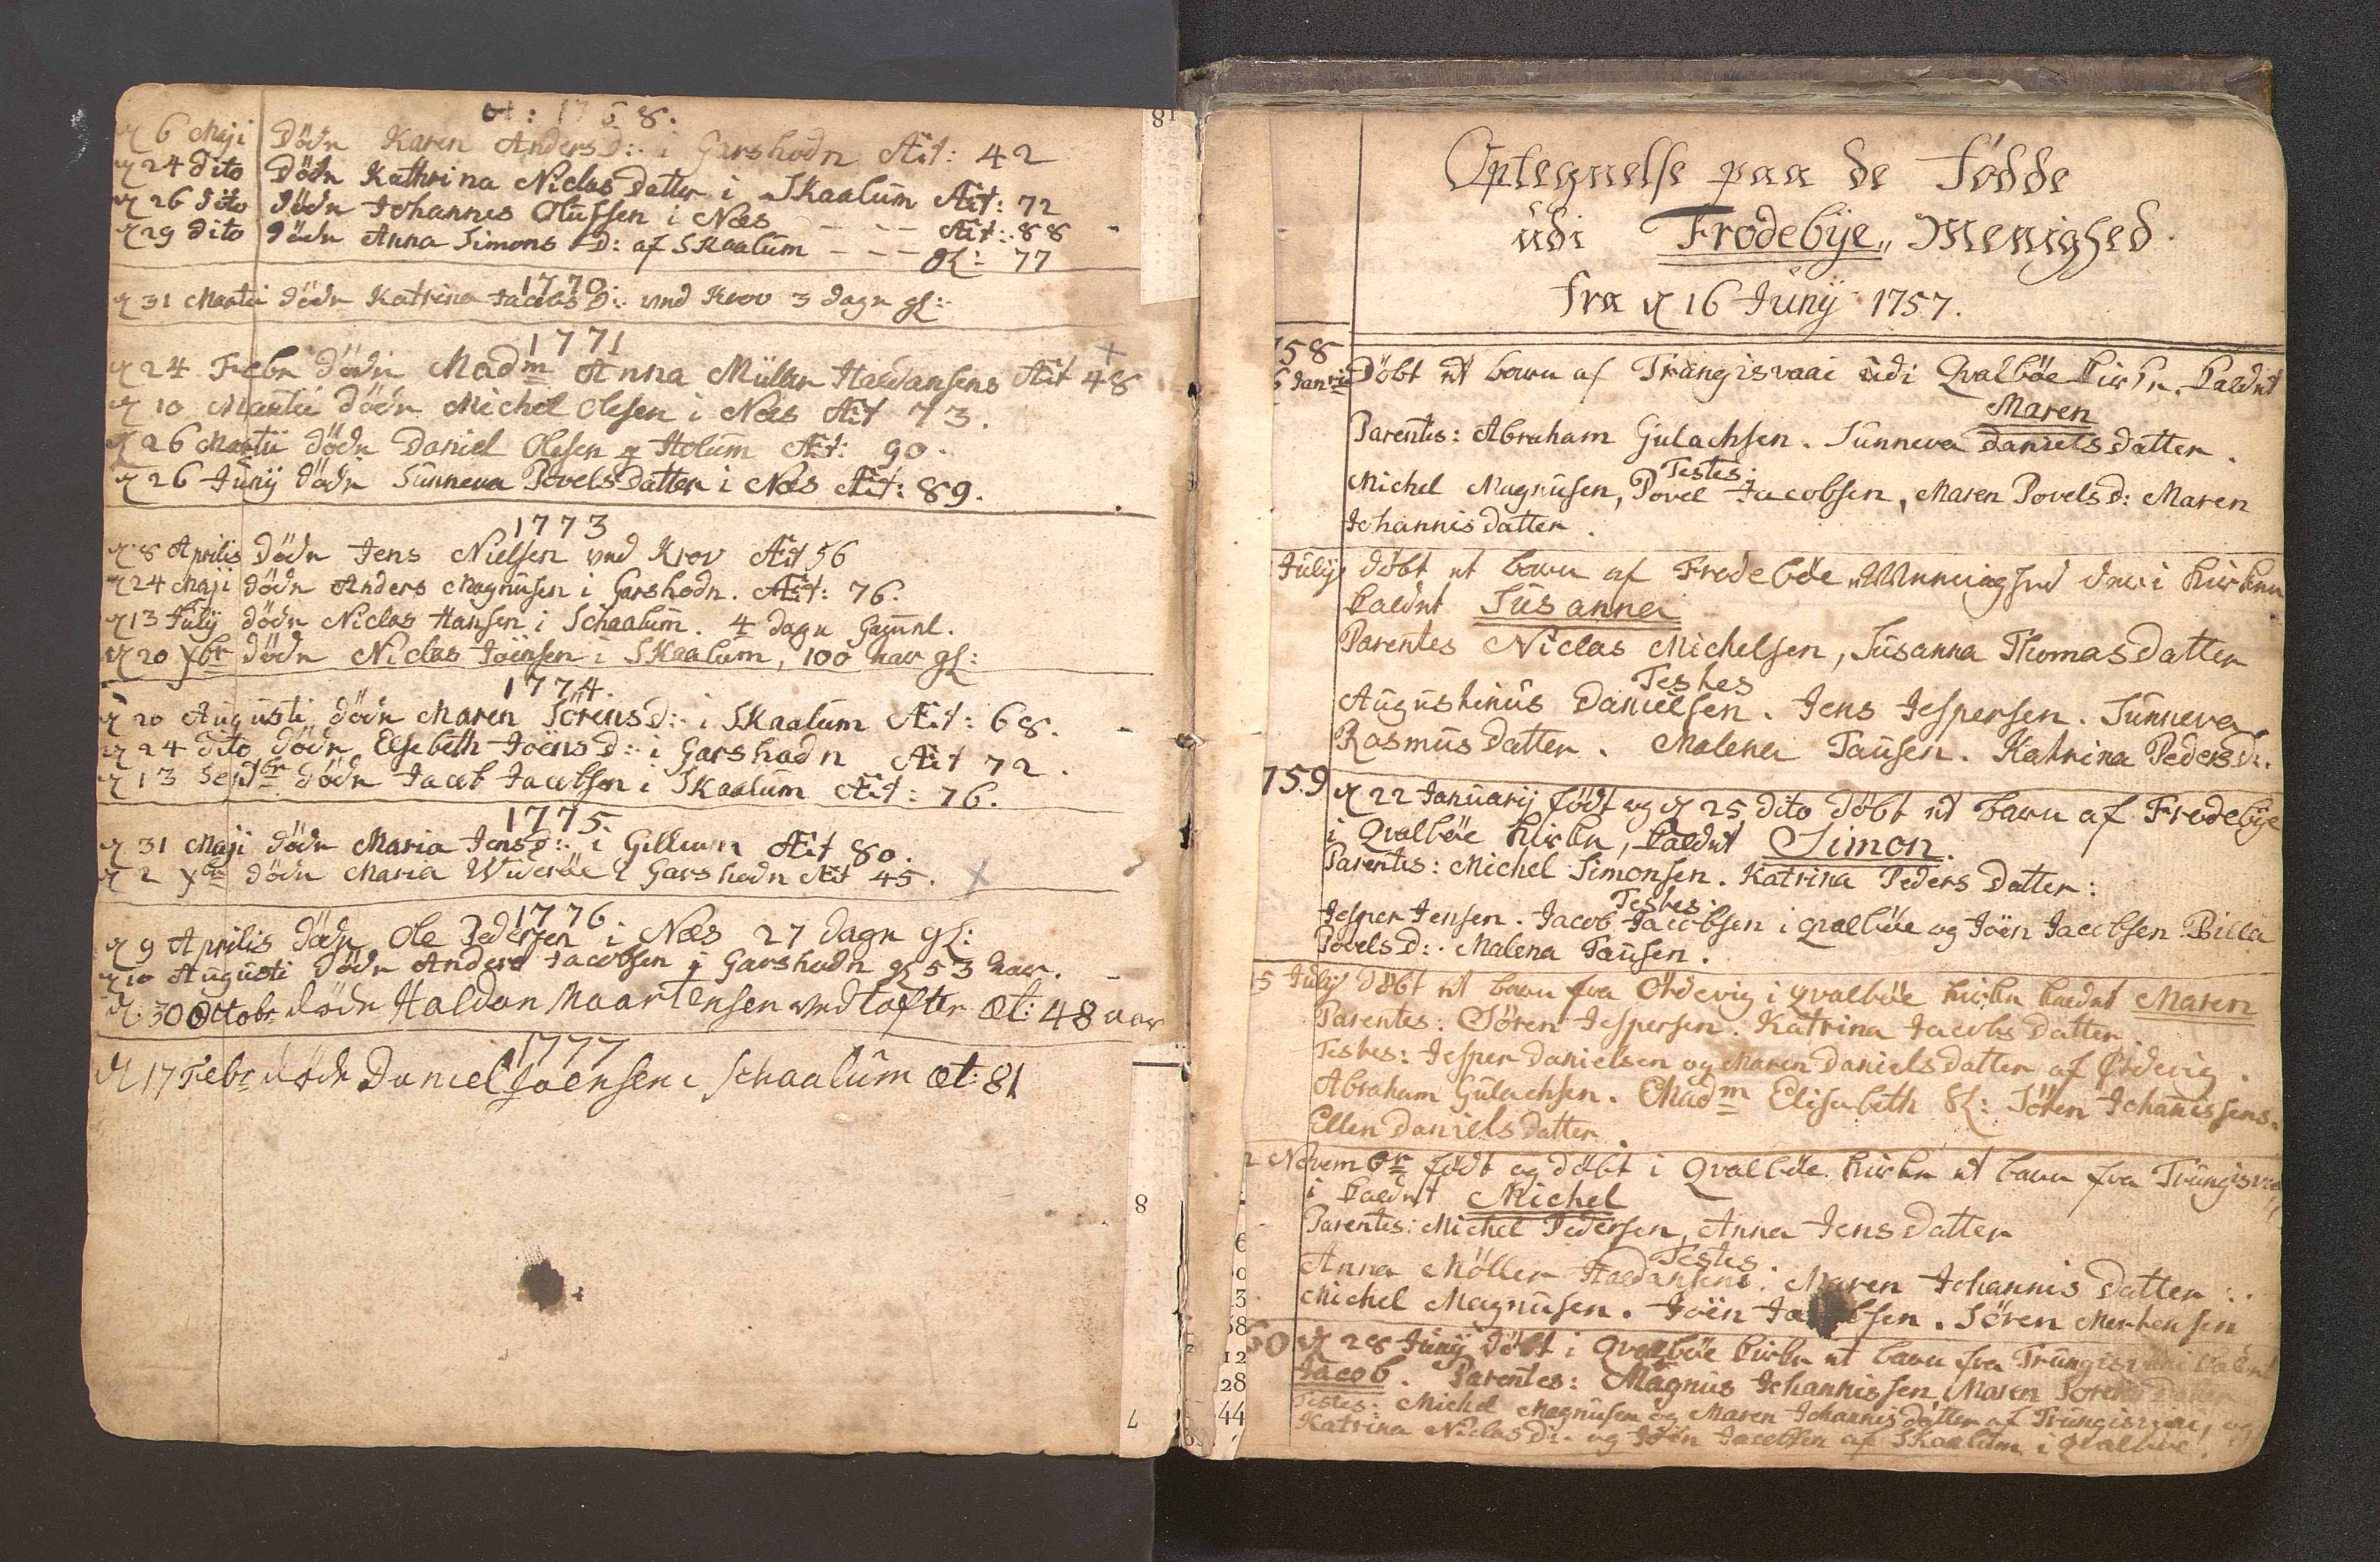 A: 1768.
d 6 Maji Døde Karen Andersd: i Garshodn Æt: 42
d 24 dito Døde Kathrina Niclas Datter i Skaalum Æt: 72
d 26 dito døde Johannes Olufsen i Næs - - - Æt: 88
d 29 dito døde Anna Simons D: af Skaalum - - - gl: 77
1770.
d 31 Martii døde Katrina Jacobs D: ved Krov 3 dage gl:
1771
d 24 Febr døde Madm Anna Müller Haldansens Æt 48
d 10 Martii døde Michel Olesen i Næs Æt 73.
d 26 Martii døde Daniel Olesen i Holum Æt: 90.
d 26 Junij døde Sunneva Povelsdatter i Næs Æt: 89.
1773
d 8 Aprilis døde Jens Nielsen ved Krov Æt 56
d 24 Maji døde Anders Magnusen i Garshodn. Æt: 76.
d 13 Julij døde Niclas Hansen i Schaalum. 4 dage gamel.
d 20 Xbr døde Niclas Joensen i Skaalum, 100 aar gl:
1774.
d 20 Augusti døde Maren Sörensd: i Skaalum Æt: 68.
d 24 dito døde Elsebeth Joensd: i Garshodn Æt 72.
d 13 Septbr døde Jacob Jacobsen i Skaalum Æt: 76.
1775.
d 31 Maji døde Maria Jensd: i Gillium Æt 80.
d 2 Xbr døde Maria Widerøe i Garshodn Æt 45.
1776.
d 9 Aprilis døde Ole Pedersen i Næs 27 dage gl:
d 10 Augusti døde Anders Jacobsen i Garshodn gl 53 aar.
d: 30 Octobr døde Haldan Maartensen ved tofter æt: 48 aar
1777
d 17 Febr døde Daniel Joensen i Schaalum æt: 81
Optegnelse paa de Fødde
udi Frodebye Menighed
fra d 16 Junij 1757.
758
6 Janrii Døbt et barn af Trangisvaai udi Qvalbøe kirke. kaldet
Maren
Parentes: Abraham Gulachsen. Sunneva Danielsdatter.
Testes:
Michel Magnusen, Povel Jacobsen, Maren Povelsd: Maren
Johannisdatter.
Julij døbt et barn af Frodebøe i kirken
kaldet Susanna
Parentes Niclas Michelsen, Susanna Thomasdatter
Testes
Augustinus Danielsen. Jens Jespersen. Sunneva
Rasmusdatter. Malena Tausen. Katrina Pedersd:.
759 d 22 Januarij født og d 25 dito døbt et barn af Frodebye
i Qvalbøe kirke, kaldet Simon.
Parentes: Michel Simonsen. Katrina Peders Datter:
Testes:
Jesper Jensen. Jacob Jacobsen i qvalbøe og Joen Jacobsen Billa
Povelsd:. Malena Tausen.
5 Julij døbt et barn fra Ørdevig i qvalbøe kirke kaldet Maren
Parentes: Sören Jespersen. Katrina Jacobs datter
Testes: Jesper Danielsen og Maren Danielsdatter af Ørdevig.
Abraham Gulachsen. Madm Elisabeth Sl: Sören Johanissens.
Ellen Danielsdatter
2 Novembr født og døbt i Qvalbøe kirke et barn fra Trangisvaa
i kaldet Michel
Parentes: Michel Pedersen, Anna Jensdatter
Testes.
Anna Möller Haldansens. Maren Johannis datter:.
Michel Magnusen. Joen Jacobsen. Sören Mertensen
60 d 28 Junij døbt i Qvalbøe kirke et barn fra Trangisvaai kaldet
Jacob. Parentes: Magnus Johannissen, Maren Sorens datter
Testes: Michel Magnusen og Maren Johannisdatter af Trangisvaai, og
Katrina Niclasd: og Joen Jacobsen af Skaalum i Qvalbøe.